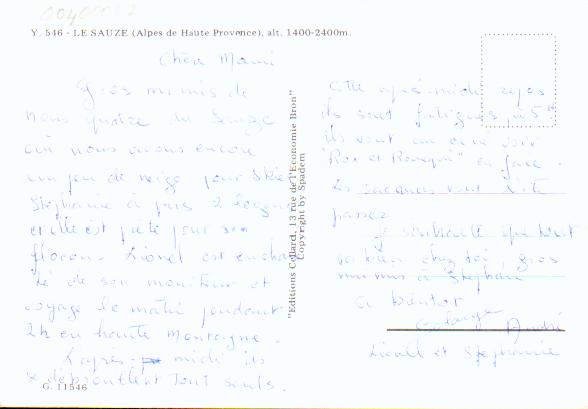 00400
Y. 546 - LE SAUZE (Alpes de Haute Provence), alt. 1400-2400m.
Chère Mami
Gros mimis de
nous quatre du Sauze
où nous avons encore
un peu de neige pour skier
Stéphanie a pris 2 leçons
et elle est prête pour son
flocon. Lionel est enchan
té de son moniteur et
voyage le matin pendant
2h en haute montagne.
L'après-midi ils
se débrouillent tout seuls.
G. 11546
"Editions Collard, 13 rue de l'Economie Bron"
Copyright by Spadem
Cette après-midi repos
ils sont fatigués à 5h
ils vont au ciné voir
"Rox et Rouky" en face.
Les vacances vont vite
passer
Je souhaite que tout
va bien chez toi, gros
mimis à Stéphane
A bientôt
Solange André
Lionel et Stéphanie